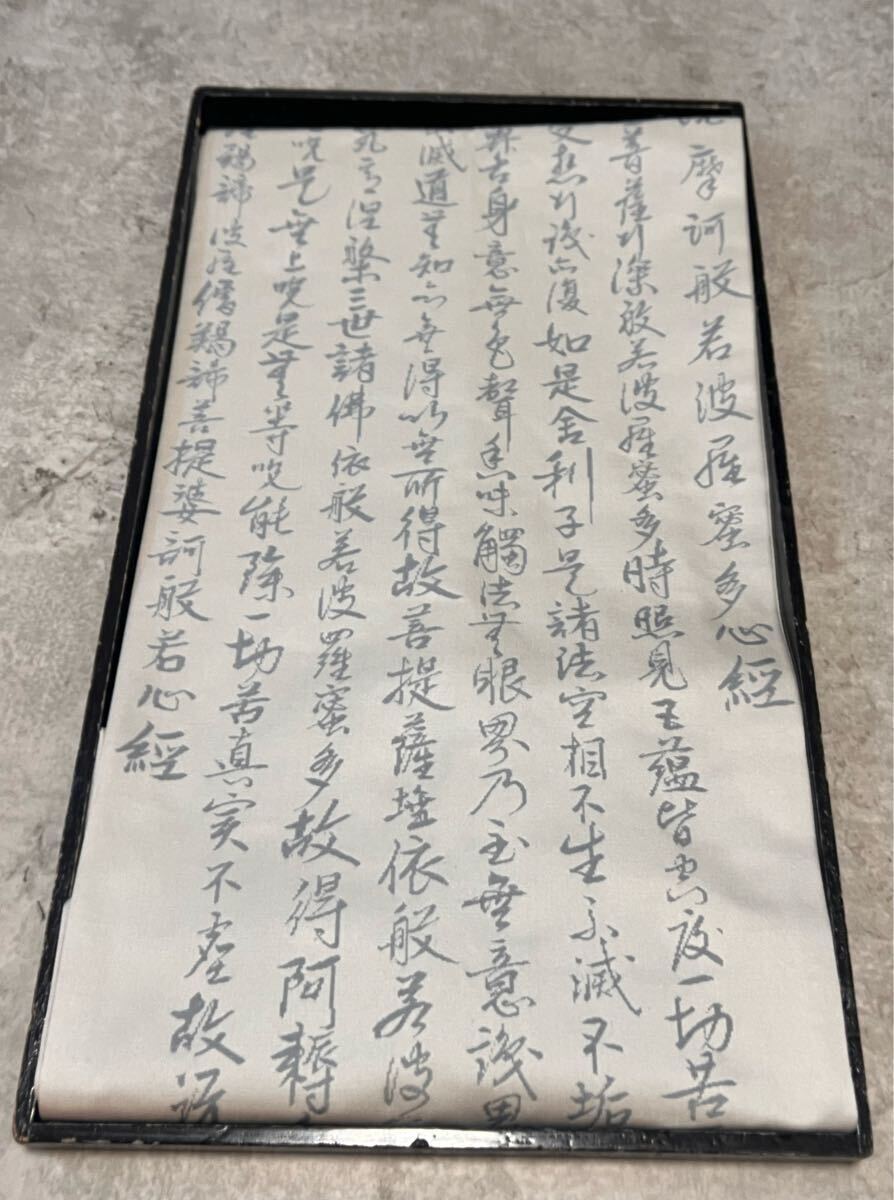 摩訶般若波羅蜜多心經
菩薩行深般若波羅蜜多時照見五蘊皆空度一切苦
受想行識亦復如是舍利子是諸法空相不生不滅不垢
鼻舌身意無色聲香味觸法無眼界乃至無意識界
滅道無知亦無得以無所得故菩提薩埵依般若波
涅槃三世諸佛依般若波羅蜜多故得阿耨
呪是無上呪是無等等呪能除一切苦真実不虛故説
羯諦波羅僧羯諦菩提婆訶般若心經